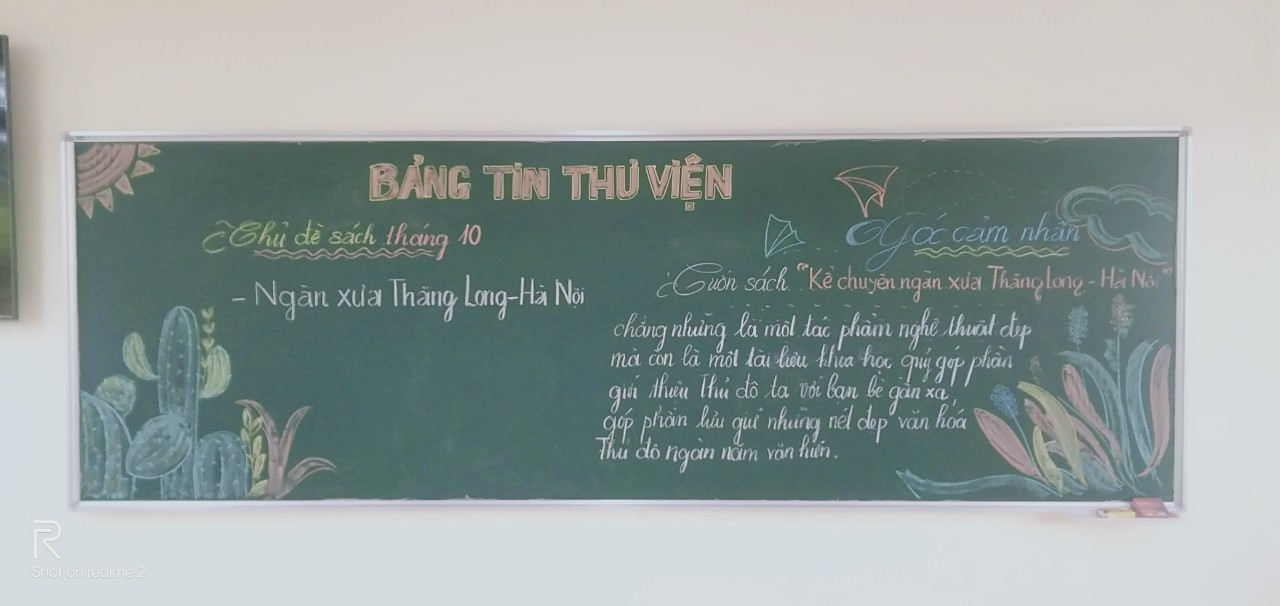 BẢNG TIN THƯ VIỆN
Chủ đề sách tháng 10
- Ngàn xưa Thăng Long-Hà Nội
Góc cảm nhận
Cuốn sách "Kể chuyện ngàn xưa Thăng Long - Hà Nội"
chẳng những là một tác phẩm nghệ thuật đẹp
mà còn là một tài liệu khoa học quý góp phần
giới thiệu thủ đô ta với bạn bè gần xa,
góp phần lưu giữ những nét đẹp văn hóa
Thủ đô ngàn năm văn hiến.
R
Shot on realme 2